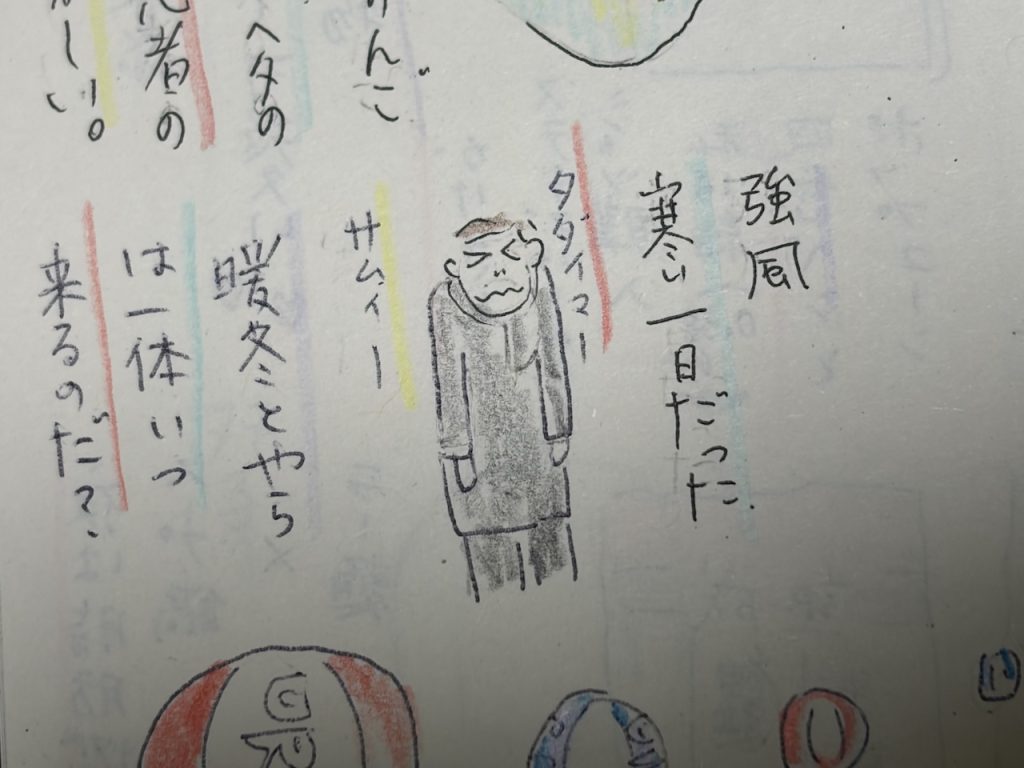 強風
寒い一日だった
タダイマー
サムィー
暖冬とやら
は一体いつ
来るのだ?
けんご
ヘタの
者の
しい。